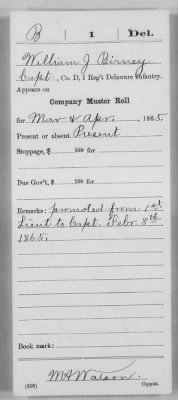 B | 1 | Del.
William J Birney
Capt., Co. D, 1 Reg't Delaware Infantry.
Appears on
Company Muster Roll
for Mar & Apr, 1865.
Present or absent Present
Stoppage, $ 100 for
Due Gov't, $ 100 for
Remarks: promoted from 1st
Lieut to Capt. Febr. 8th
1865.
Book mark:
M A Watson
(358) Copyist.